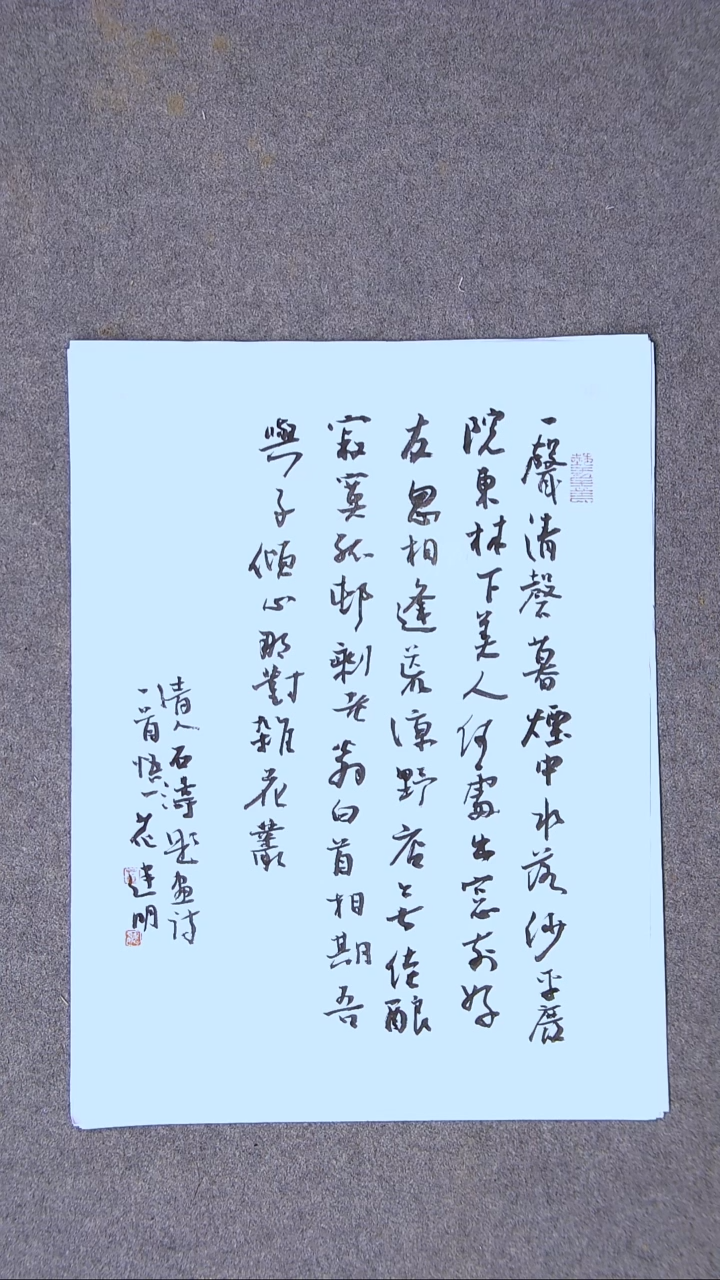 一聲清磬暮煙中水落沙平廢
院東林下美人何處出窓前好
友忽相逢荒涼野店無佳釀
寂寞孤邨剩老翁白首相期吾
與子傾心那對雜花叢
清人石濤題画诗
一首悟一 建明